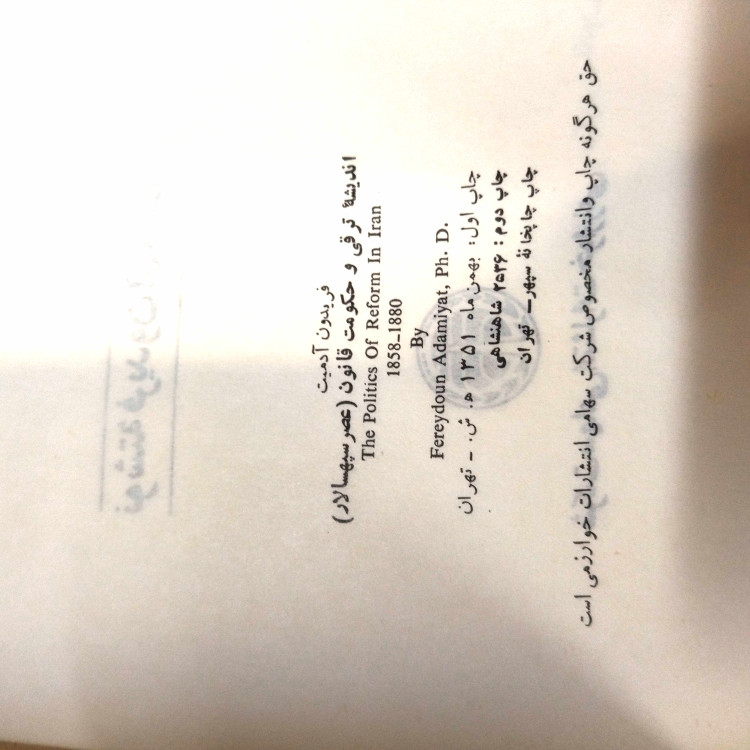 فریدون آدمیت
اندیشهٔ ترقی و حکومت قانون (عصر سپهسالار)
The Politics Of Reform In Iran
1858_1880
By
Fereydoun Adamiyat, Ph. D.
چاپ اول: بهمن ماه ۱۳۵۱ ه. ش. - تهران
چاپ دوم: ۲۵۳۶ شاهنشاهی
چاپ چاپخانهٔ سپهر - تهران
حق هرگونه چاپ و انتشار مخصوص شرکت سهامی انتشارات خوارزمی است